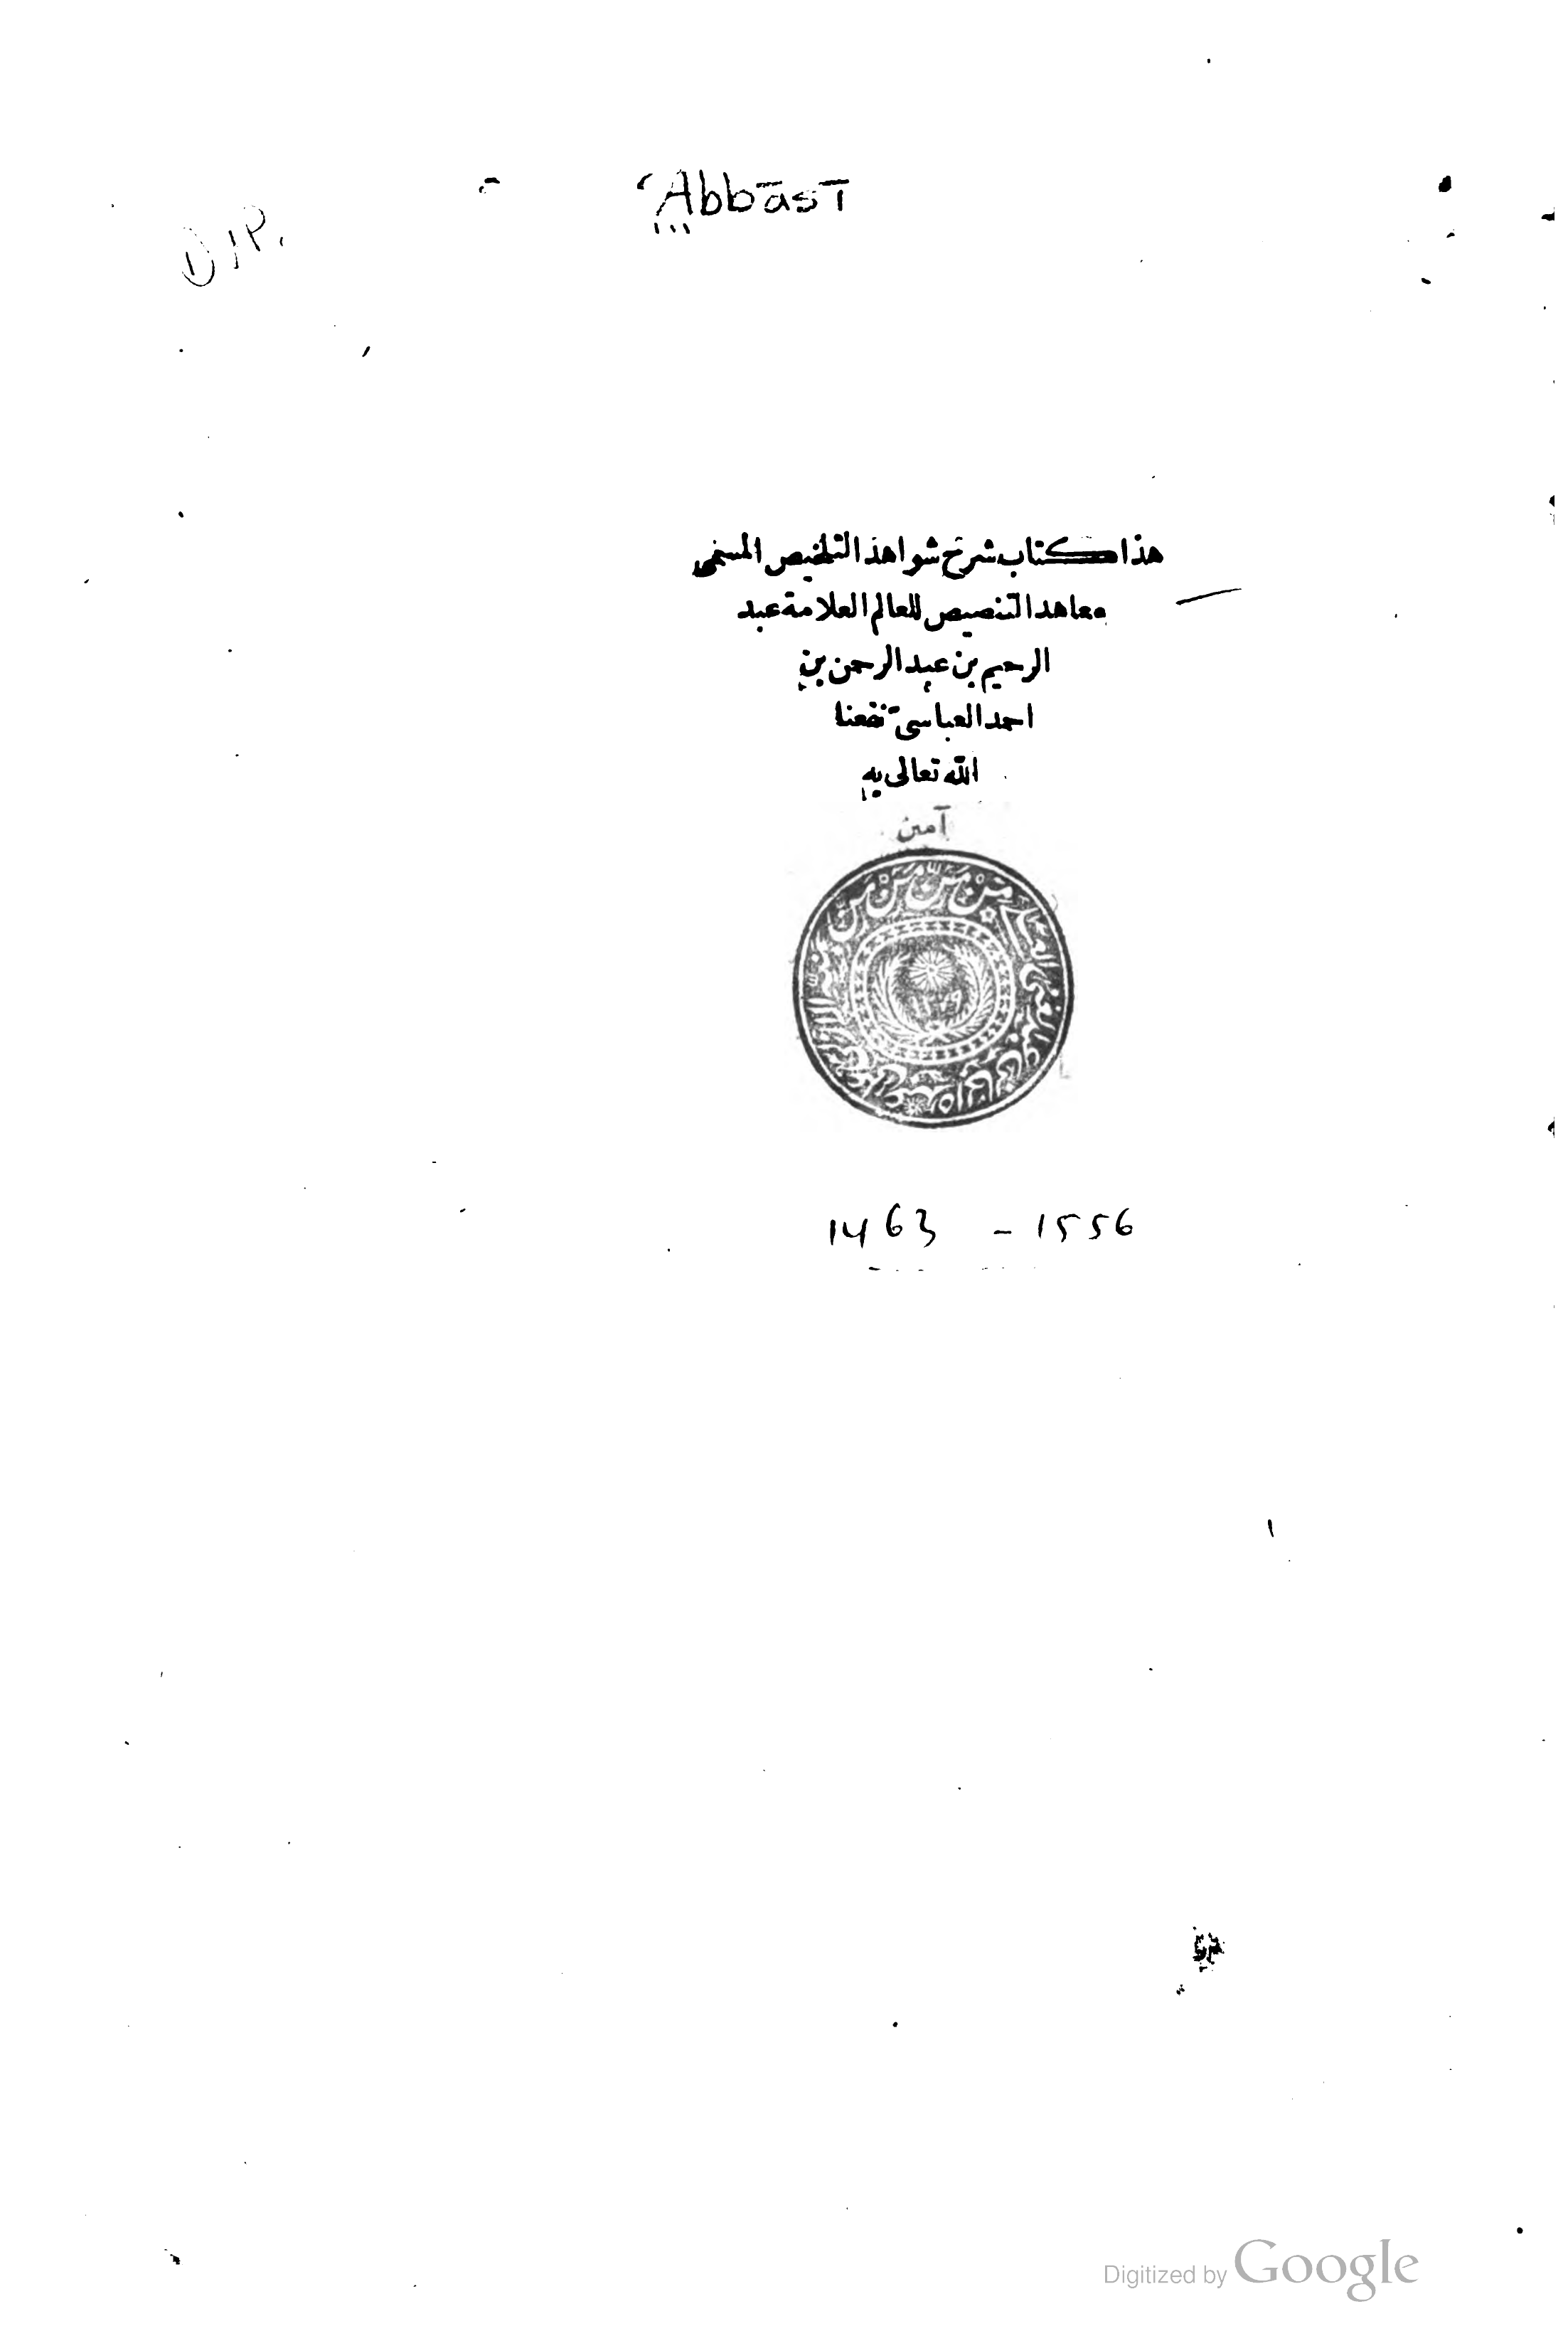 ʿAbbāsī
O.P.
هذا كتاب شرح شواهد التلخيص المسمى
معاهد التنصيص للعالم العلامة عبد
الرحيم بن عبد الرحمن بن
احمد العباسي نفعنا
الله تعالى به
آمين
١٢٧٩
1463 - 1556
Digitized by Google